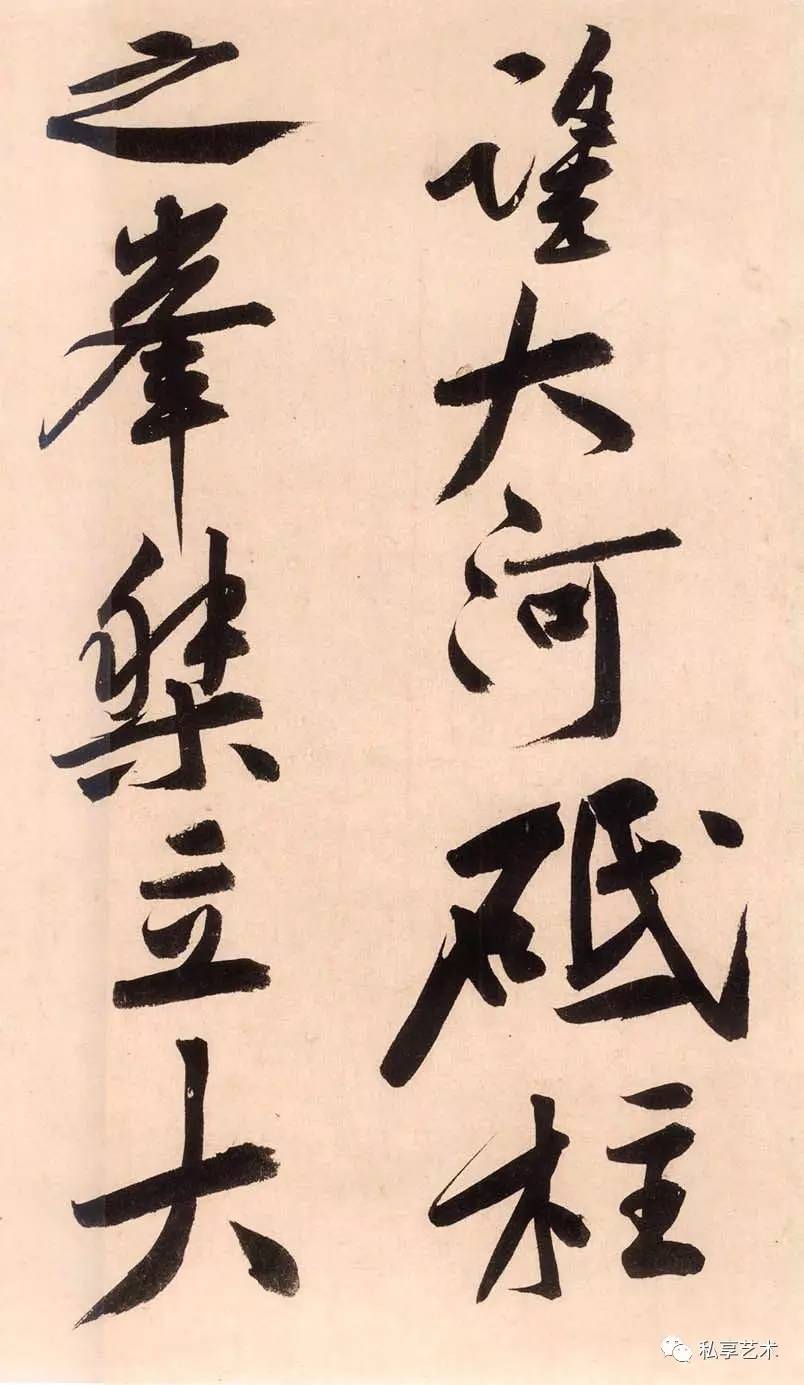 望大河砥柱
之峯桀立大
私享艺术